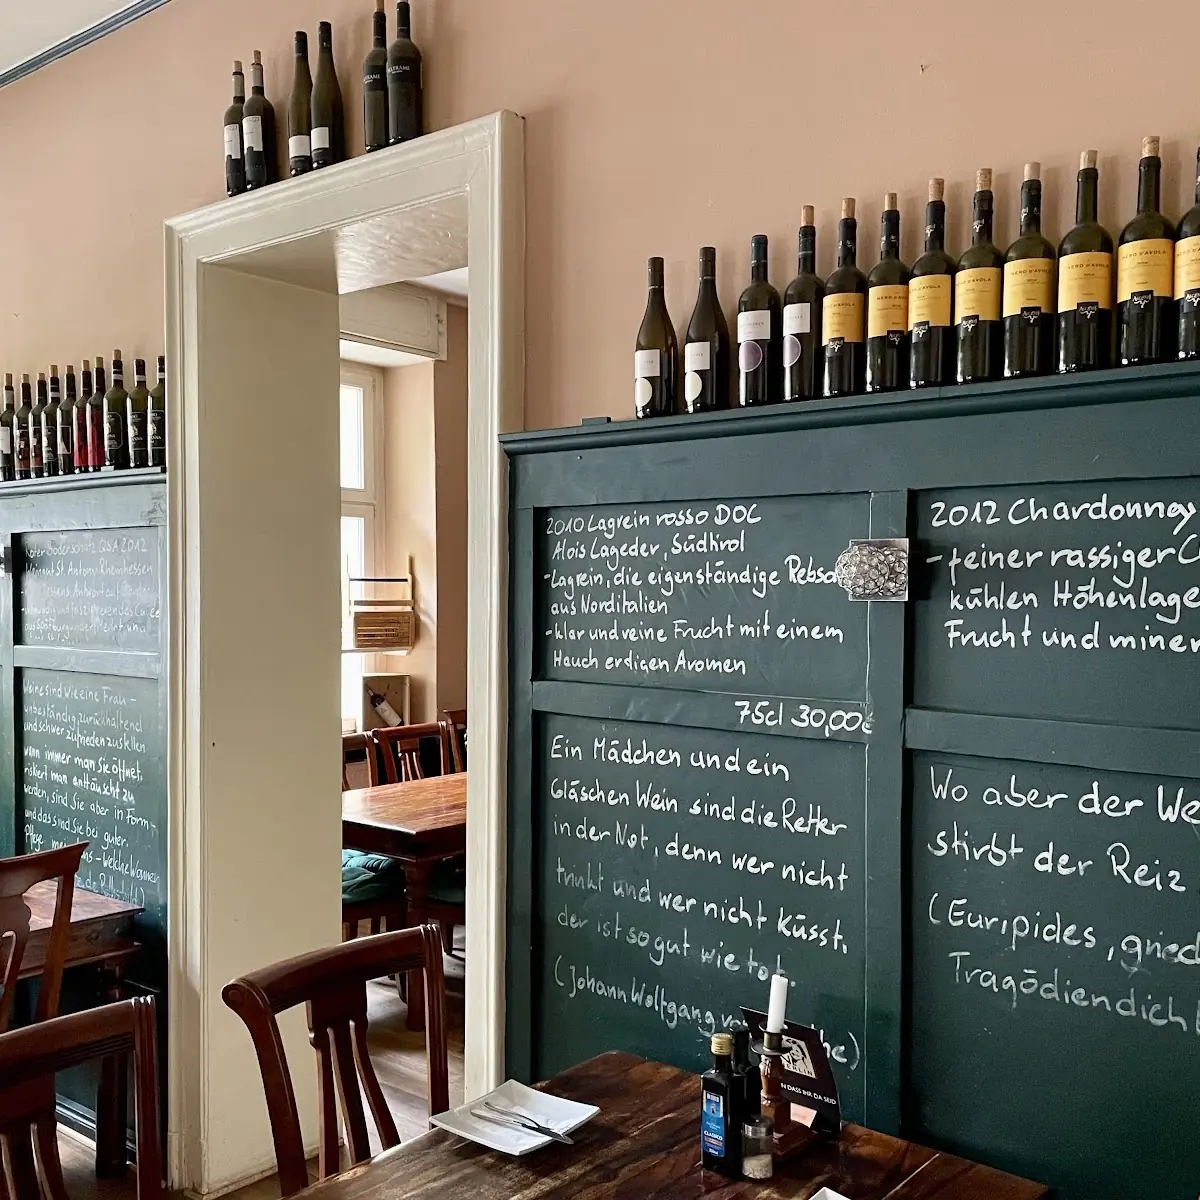 2010 Lagrein rosso DOC
Alois Lageder, Südtirol
-Lagrein, die eigenständige Rebso
aus Norditalien
-klar und reine Frucht mit einem
Hauch erdigen Aromen
75cl 30,00€
Ein Mädchen und ein
Gläschen Wein sind die Retter
in der Not, denn wer nicht
trinkt und wer nicht küsst,
der ist so gut wie tot.
(Johann Wolfgang von he)
2012 Chardonnay
-feiner rassiger C
kühlen Höhenlage
Frucht und miner
Wo aber der We
stirbt der Reiz
(Euripides, griec
Tragödiendich
Roter Bodenschatz QSA 2012
Weingut St. Antony Rheinhessen
Weine sind wie eine Frau -
unbeständig, zurückhaltend
und schwer zufrieden zu stellen
wann immer man sie öffnet,
riskiert man enttäuscht zu
werden, sind Sie aber in Form -
und das sind Sie bei guter
Pflege
NERO D'AVOLA
NERO D'AVOLA
NERO D'AVOLA
NERO D'AVOLA
CLASSICO
BERLIN
N DASS IHR DA SEID